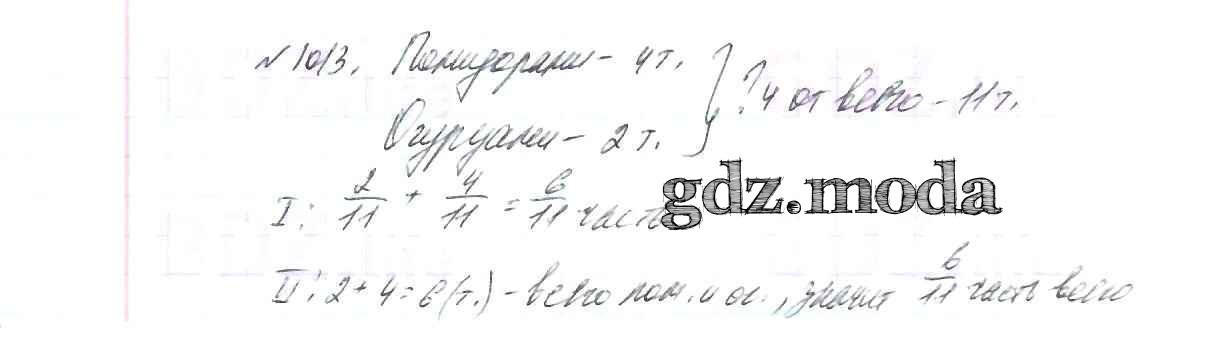 №1013. Помидорами - 4т.
Огурцами - 2т.
? ч от всего - 11т.
I: 2/11 + 4/11 = 6/11 часть
gdz.moda
II: 2+4=6(т.) - всего пом. и ог., значит 6/11 часть всего